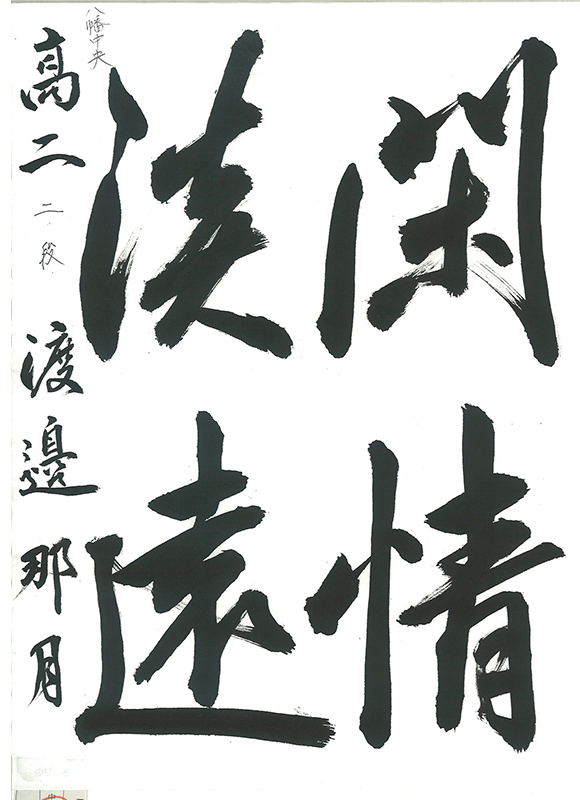 閑情
淡遠
八幡中央
高二 二段 渡邊那月